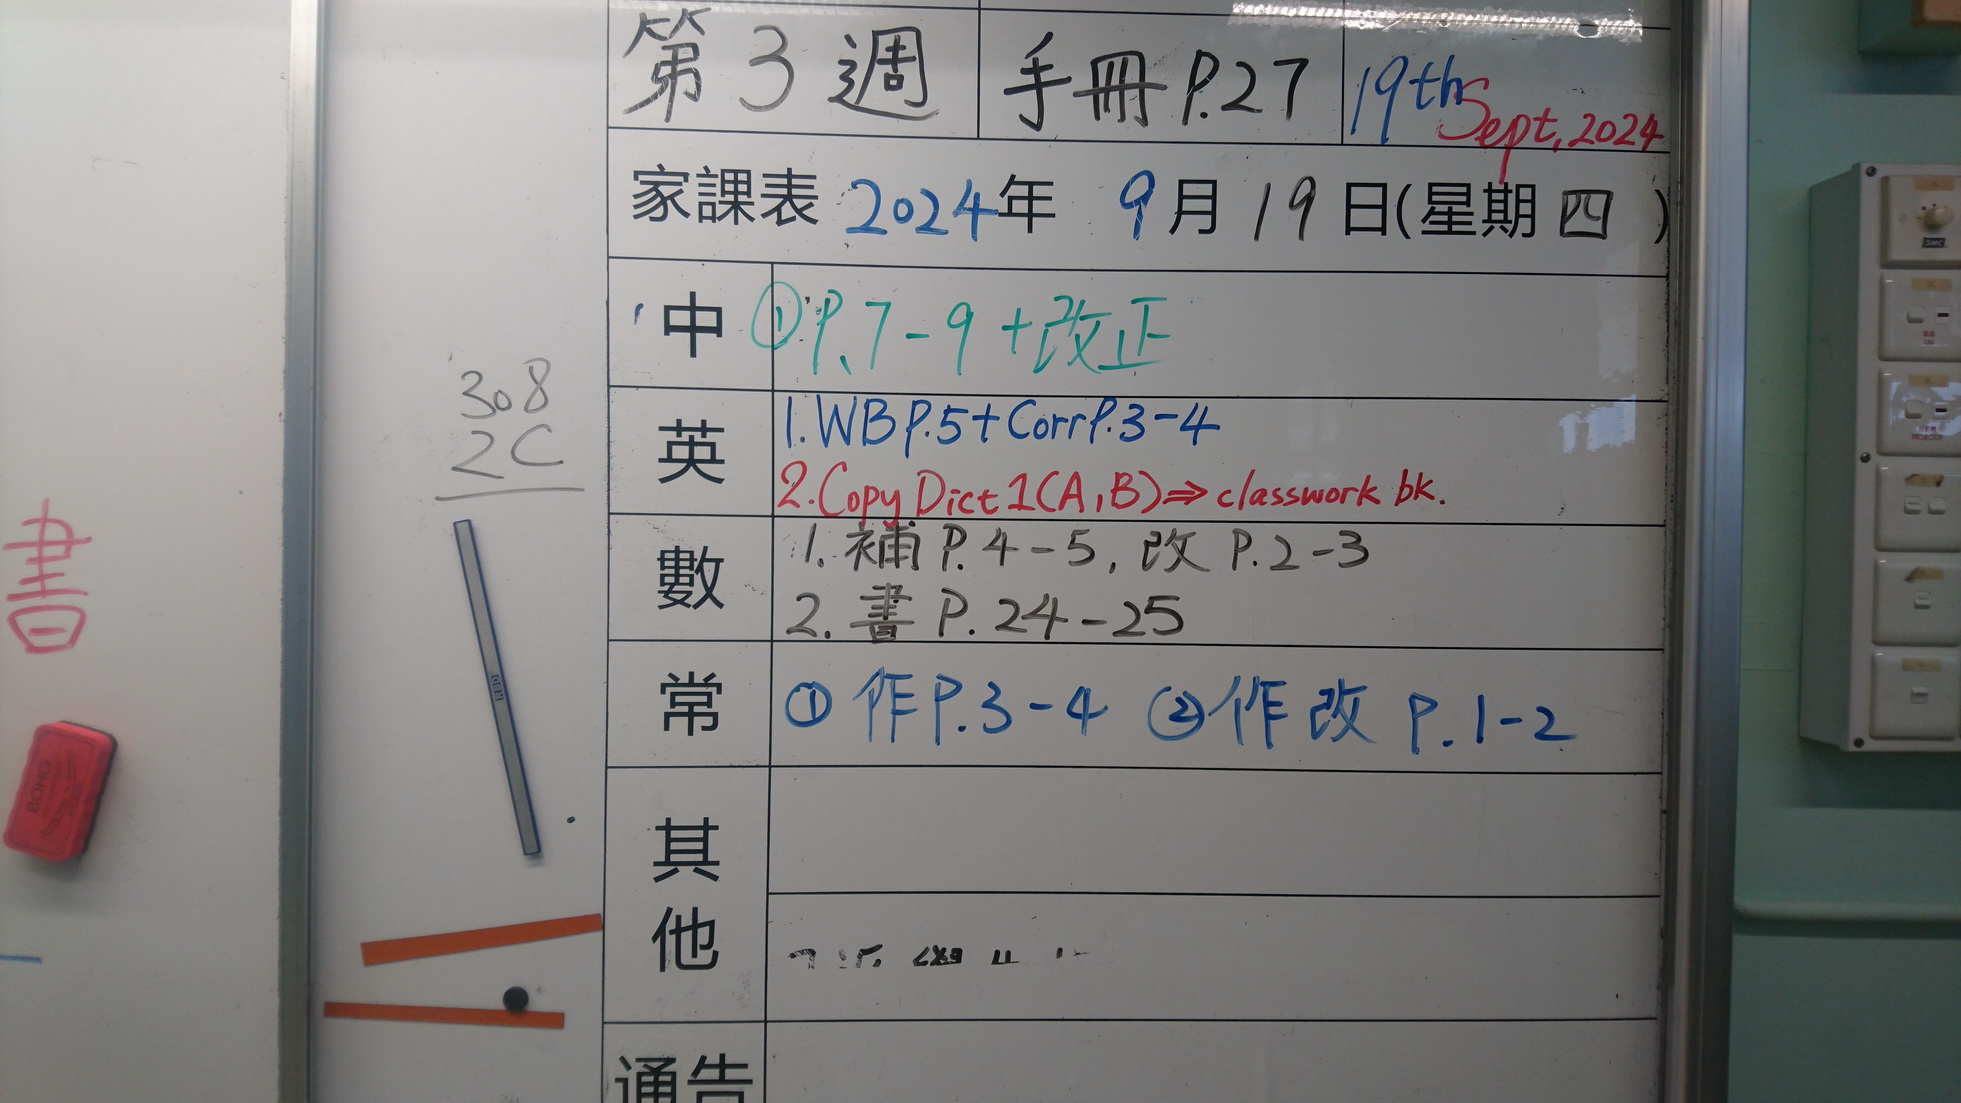 第3週 手冊P.27 19th Sept, 2024
家課表 2024年 9月19日(星期四)
中 ①P.7-9+改正
英 1.WB P.5+Corr P.3-4
2.Copy Dict 1(A,B)⇒classwork bk.
數 1.補P.4-5,改P.2-3
2.書P.24-25
常 ①作P.3-4 ②作改 P.1-2
其他
通告
308
2C
書
BOHO